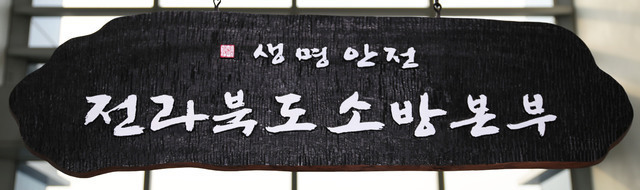 생명 안전
전라북도소방본부